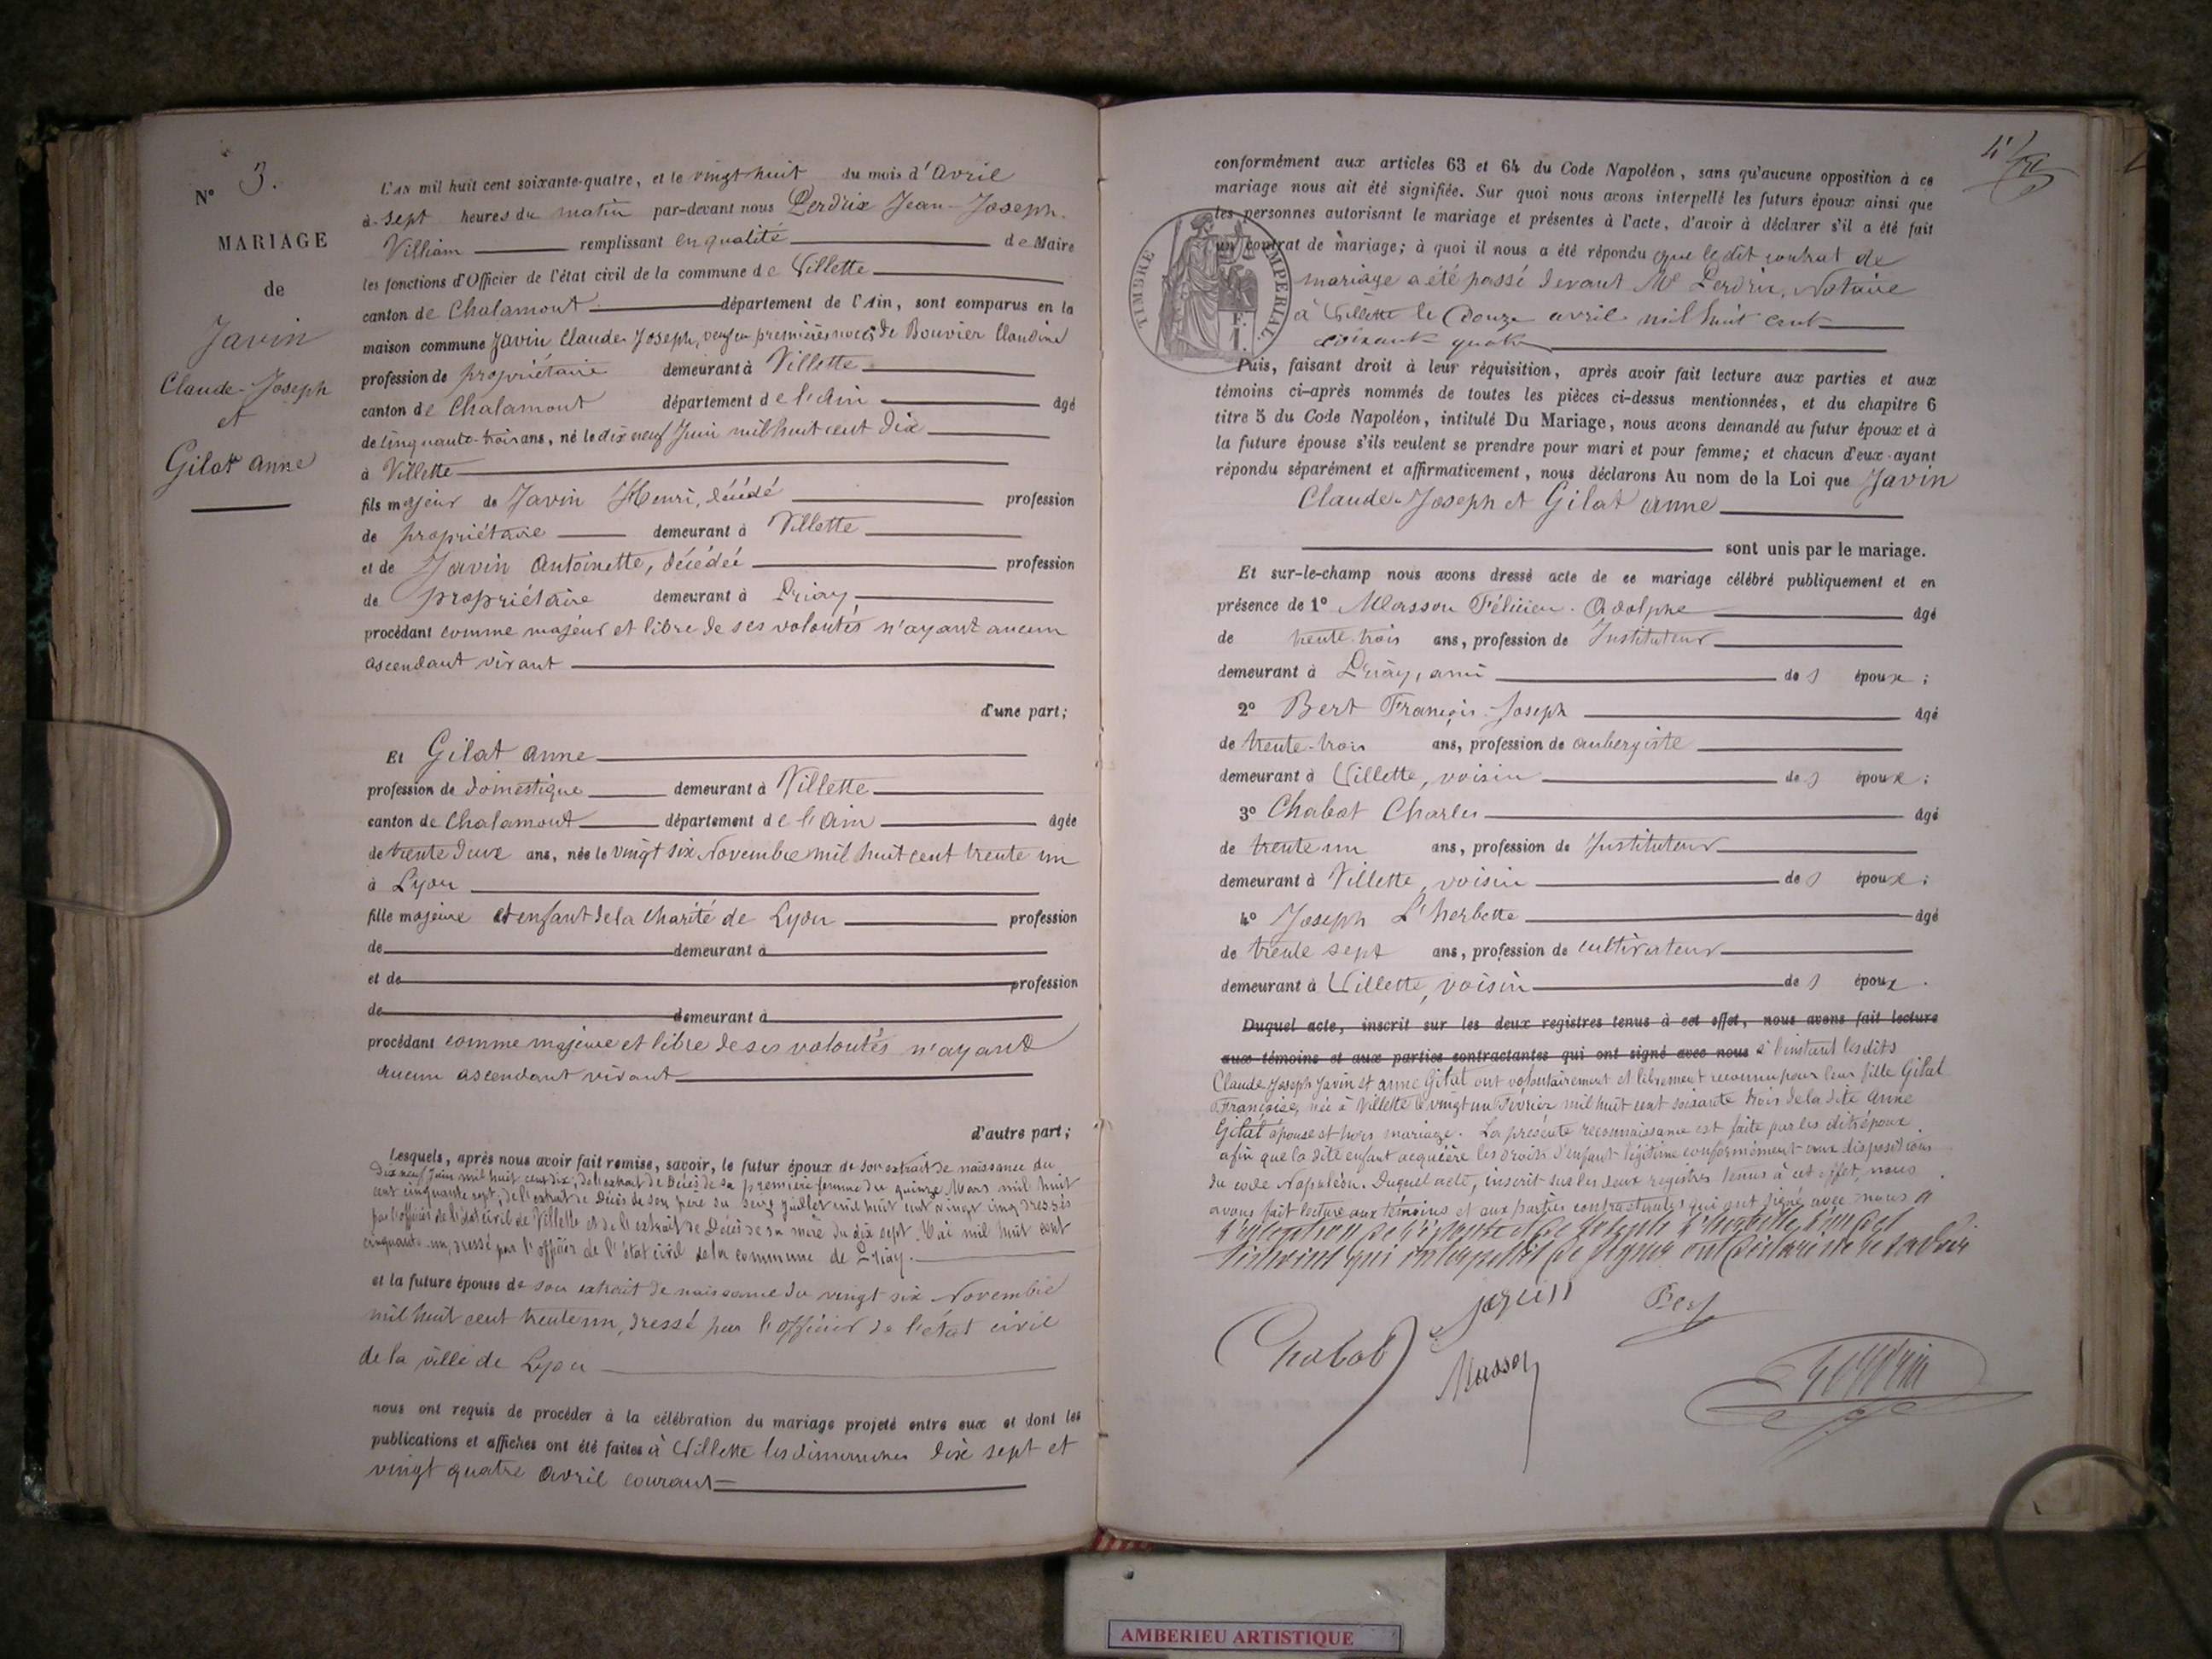 N° 3.
MARIAGE
de
Javin
Claude-Joseph
et
Gilat anne
L'AN mil huit cent soixante-quatre, et le vingt huit du mois d'Avril
à sept heures du matin par-devant nous Perdrix Jean-Joseph.
Villiam remplissant en qualité de Maire
les fonctions d'Officier de l'état civil de la commune de Villette
canton de Chalamont département de l'Ain, sont comparus en la
maison commune Javin Claude Joseph, veuf en premières noces de Bouvier Claudine
profession de propriétaire demeurant à Villette
canton de Chalamont département de l'Ain âgé
de cinquante-trois ans, né le dix neuf Juin mil huit cent dix
à Villette
fils majeur de Javin Henri, décédé profession
de propriétaire demeurant à Villette
et de Javin Antoinette, décédée profession
de propriétaire demeurant à Priay
procédant comme majeur et libre de ses volontés n'ayant aucun
ascendant vivant
d'une part;
Et Gilat anne
profession de domestique demeurant à Villette
canton de Chalamont département de l'Ain âgée
de trente deux ans, née le vingt six Novembre mil huit cent trente un
à Lyon
fille majeure et enfant de la charité de Lyon profession
de demeurant à
et de profession
de demeurant à
procédant comme majeure et libre de ses volontés n'ayant
aucun ascendant vivant
d'autre part;
Lesquels, après nous avoir fait remise, savoir, le futur époux de son extrait de naissance du
dix neuf Juin mil huit cent dix, de l'extrait de Décès de sa première femme du quinze Mars mil huit
cent cinquante sept, de l'extrait de Décès de son père du seize Juillet mil huit cent vingt cinq dressés
par l'officier de l'état civil de Villette et de l'extrait de Décès de sa mère du dix sept Mai mil huit cent
cinquante-un, dressé par l'officier de l'état civil de la commune de Priay.
et la future épouse de son extrait de naissance du vingt six Novembre
mil huit cent trente un, dressé par l'officier de l'état civil
de la ville de Lyon
nous ont requis de procéder à la célébration du mariage projeté entre eux et dont les
publications et affiches ont été faites à Villette les dimanches dix sept et
vingt quatre avril courant
conformément aux articles 63 et 64 du Code Napoléon, sans qu'aucune opposition à ce
mariage nous ait été signifiée. Sur quoi nous avons interpellé les futurs époux ainsi que
les personnes autorisant le mariage et présentes à l'acte, d'avoir à déclarer s'il a été fait
un contrat de mariage; à quoi il nous a été répondu que ledit contrat de
mariage a été passé devant Me Perdrix, Notaire
à Villette le douze avril mil huit cent
soixante quatre
TIMBRE IMPERIAL
1 F.
Puis, faisant droit à leur réquisition, après avoir fait lecture aux parties et aux
témoins ci-après nommés de toutes les pièces ci-dessus mentionnées, et du chapitre 6
titre 5 du Code Napoléon, intitulé Du Mariage, nous avons demandé au futur époux et à
la future épouse s'ils veulent se prendre pour mari et pour femme; et chacun d'eux ayant
répondu séparément et affirmativement, nous déclarons Au nom de la Loi que Javin
Claude-Joseph et Gilat anne
sont unis par le mariage.
Et sur-le-champ nous avons dressé acte de ce mariage célébré publiquement et en
présence de 1° Masson Félicien-Adolphe âgé
de trente-trois ans, profession de Instituteur
demeurant à Priay, ami des époux;
2° Bert François-Joseph âgé
de trente-trois ans, profession de aubergiste
demeurant à Villette, voisin des époux;
3° Chabot Charles âgé
de trente un ans, profession de Instituteur
demeurant à Villette, voisin des époux;
4° Joseph L'herbette âgé
de trente sept ans, profession de cultivateur
demeurant à Villette, voisin des époux.
Duquel acte, inscrit sur les deux registres tenus à cet effet, nous avons fait lecture
aux témoins et aux parties contractantes qui ont signé avec nous à l'instant lesdits
Claude Joseph Javin et anne Gilat ont volontairement et librement reconnu pour leur fille Gilat
Françoise, née à Villette le vingt un Février mil huit cent soixante trois de la dite Anne
Gilat épouse et hors mariage. La présente reconnaissance est faite par les dits époux
afin que la dite enfant acquière les droits d'enfant légitime conformément aux dispositions
du code Napoléon. Duquel acte, inscrit sur les deux registres tenus à cet effet, nous
avons fait lecture aux témoins et aux parties contractantes qui ont signé avec nous à
l'exception de l'épouse et de Joseph L'herbette l'un des
témoins qui interpellés de signer ont déclaré ne le savoir
javin
Bert
Chabot
Masson
Perdrix
AMBERIEU ARTISTIQUE